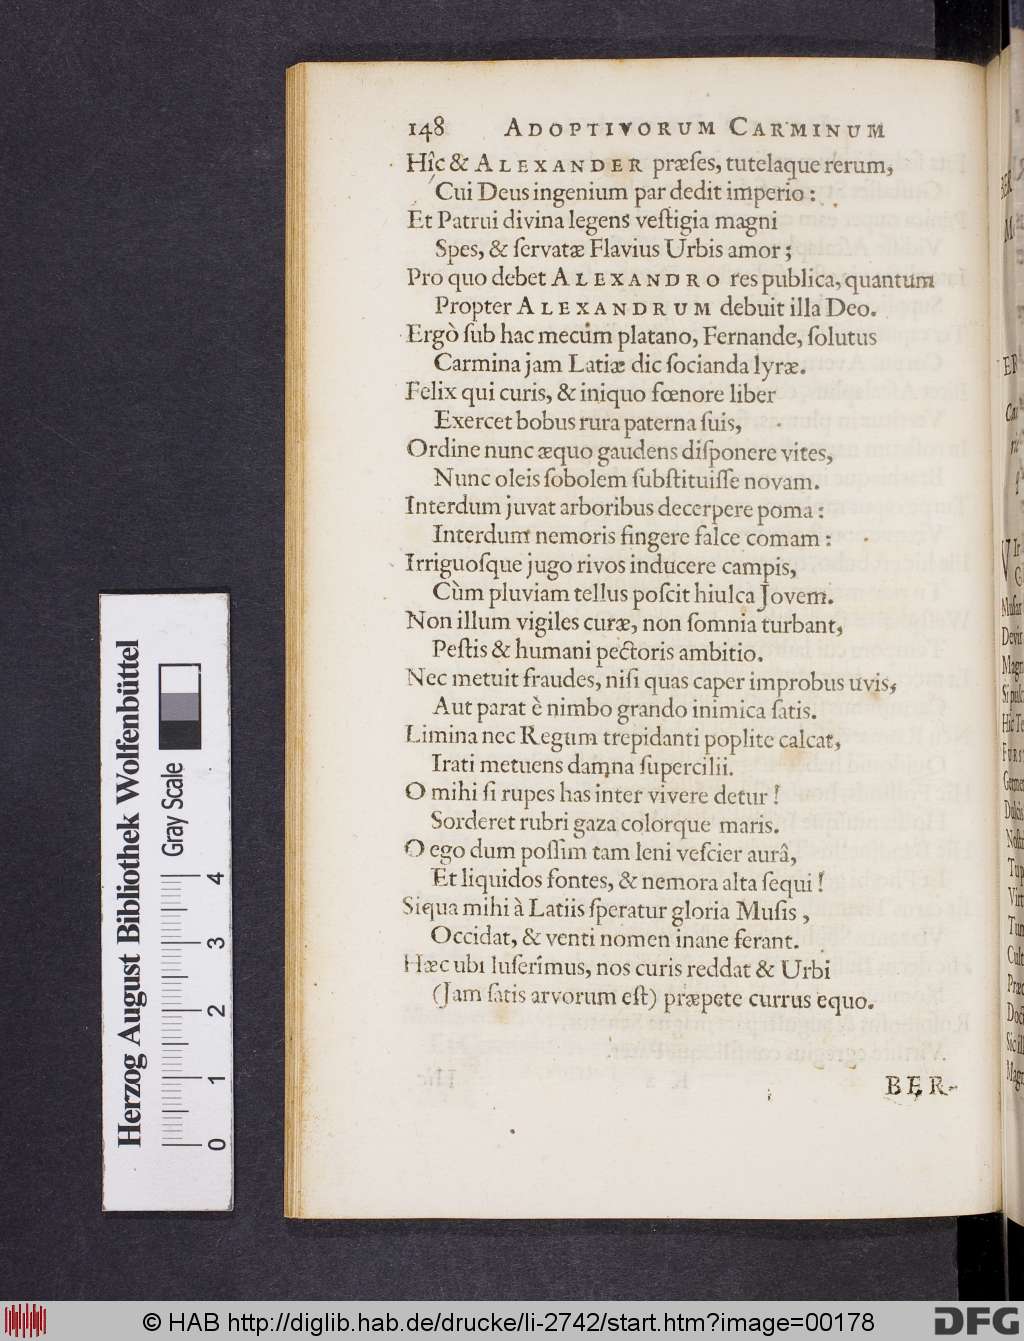 148 ADOPTIVORUM CARMINUM
Hîc & ALEXANDER præſes, tutelaque rerum,
Cui Deus ingenium par dedit imperio :
Et Patrui divina legens veſtigia magni
Spes, & ſervatæ Flavius Urbis amor ;
Pro quo debet ALEXANDRO res publica, quantum
Propter ALEXANDRUM debuit illa Deo.
Ergò ſub hac mecum platano, Fernande, ſolutus
Carmina jam Latiæ dic ſocianda lyræ.
Felix qui curis, & iniquo fœnore liber
Exercet bobus rura paterna ſuis,
Ordine nunc æquo gaudens diſponere vites,
Nunc oleis ſobolem ſubſtituiſſe novam.
Interdum juvat arboribus decerpere poma :
Interdum nemoris fingere falce comam :
Irriguoſque jugo rivos inducere campis,
Cùm pluviam tellus poſcit hiulca Jovem.
Non illum vigiles curæ, non ſomnia turbant,
Peſtis & humani pectoris ambitio.
Nec metuit fraudes, niſi quas caper improbus uvis,
Aut parat è nimbo grando inimica ſatis.
Limina nec Regum trepidanti poplite calcat,
Irati metuens damna ſupercilii.
O mihi ſi rupes has inter vivere detur !
Sorderet rubri gaza colorque maris.
O ego dum poſſim tam leni veſcier aurâ,
Et liquidos fontes, & nemora alta ſequi !
Siqua mihi à Latiis ſperatur gloria Muſis ,
Occidat, & venti nomen inane ferant.
Hæc ubi luſerimus, nos curis reddat & Urbi
(Jam ſatis arvorum eſt) præpete currus equo.
BER-
Herzog August Bibliothek Wolfenbüttel
Gray Scale
0 1 2 3 4
© HAB http://diglib.hab.de/drucke/li-2742/start.htm?image=00178
DFG